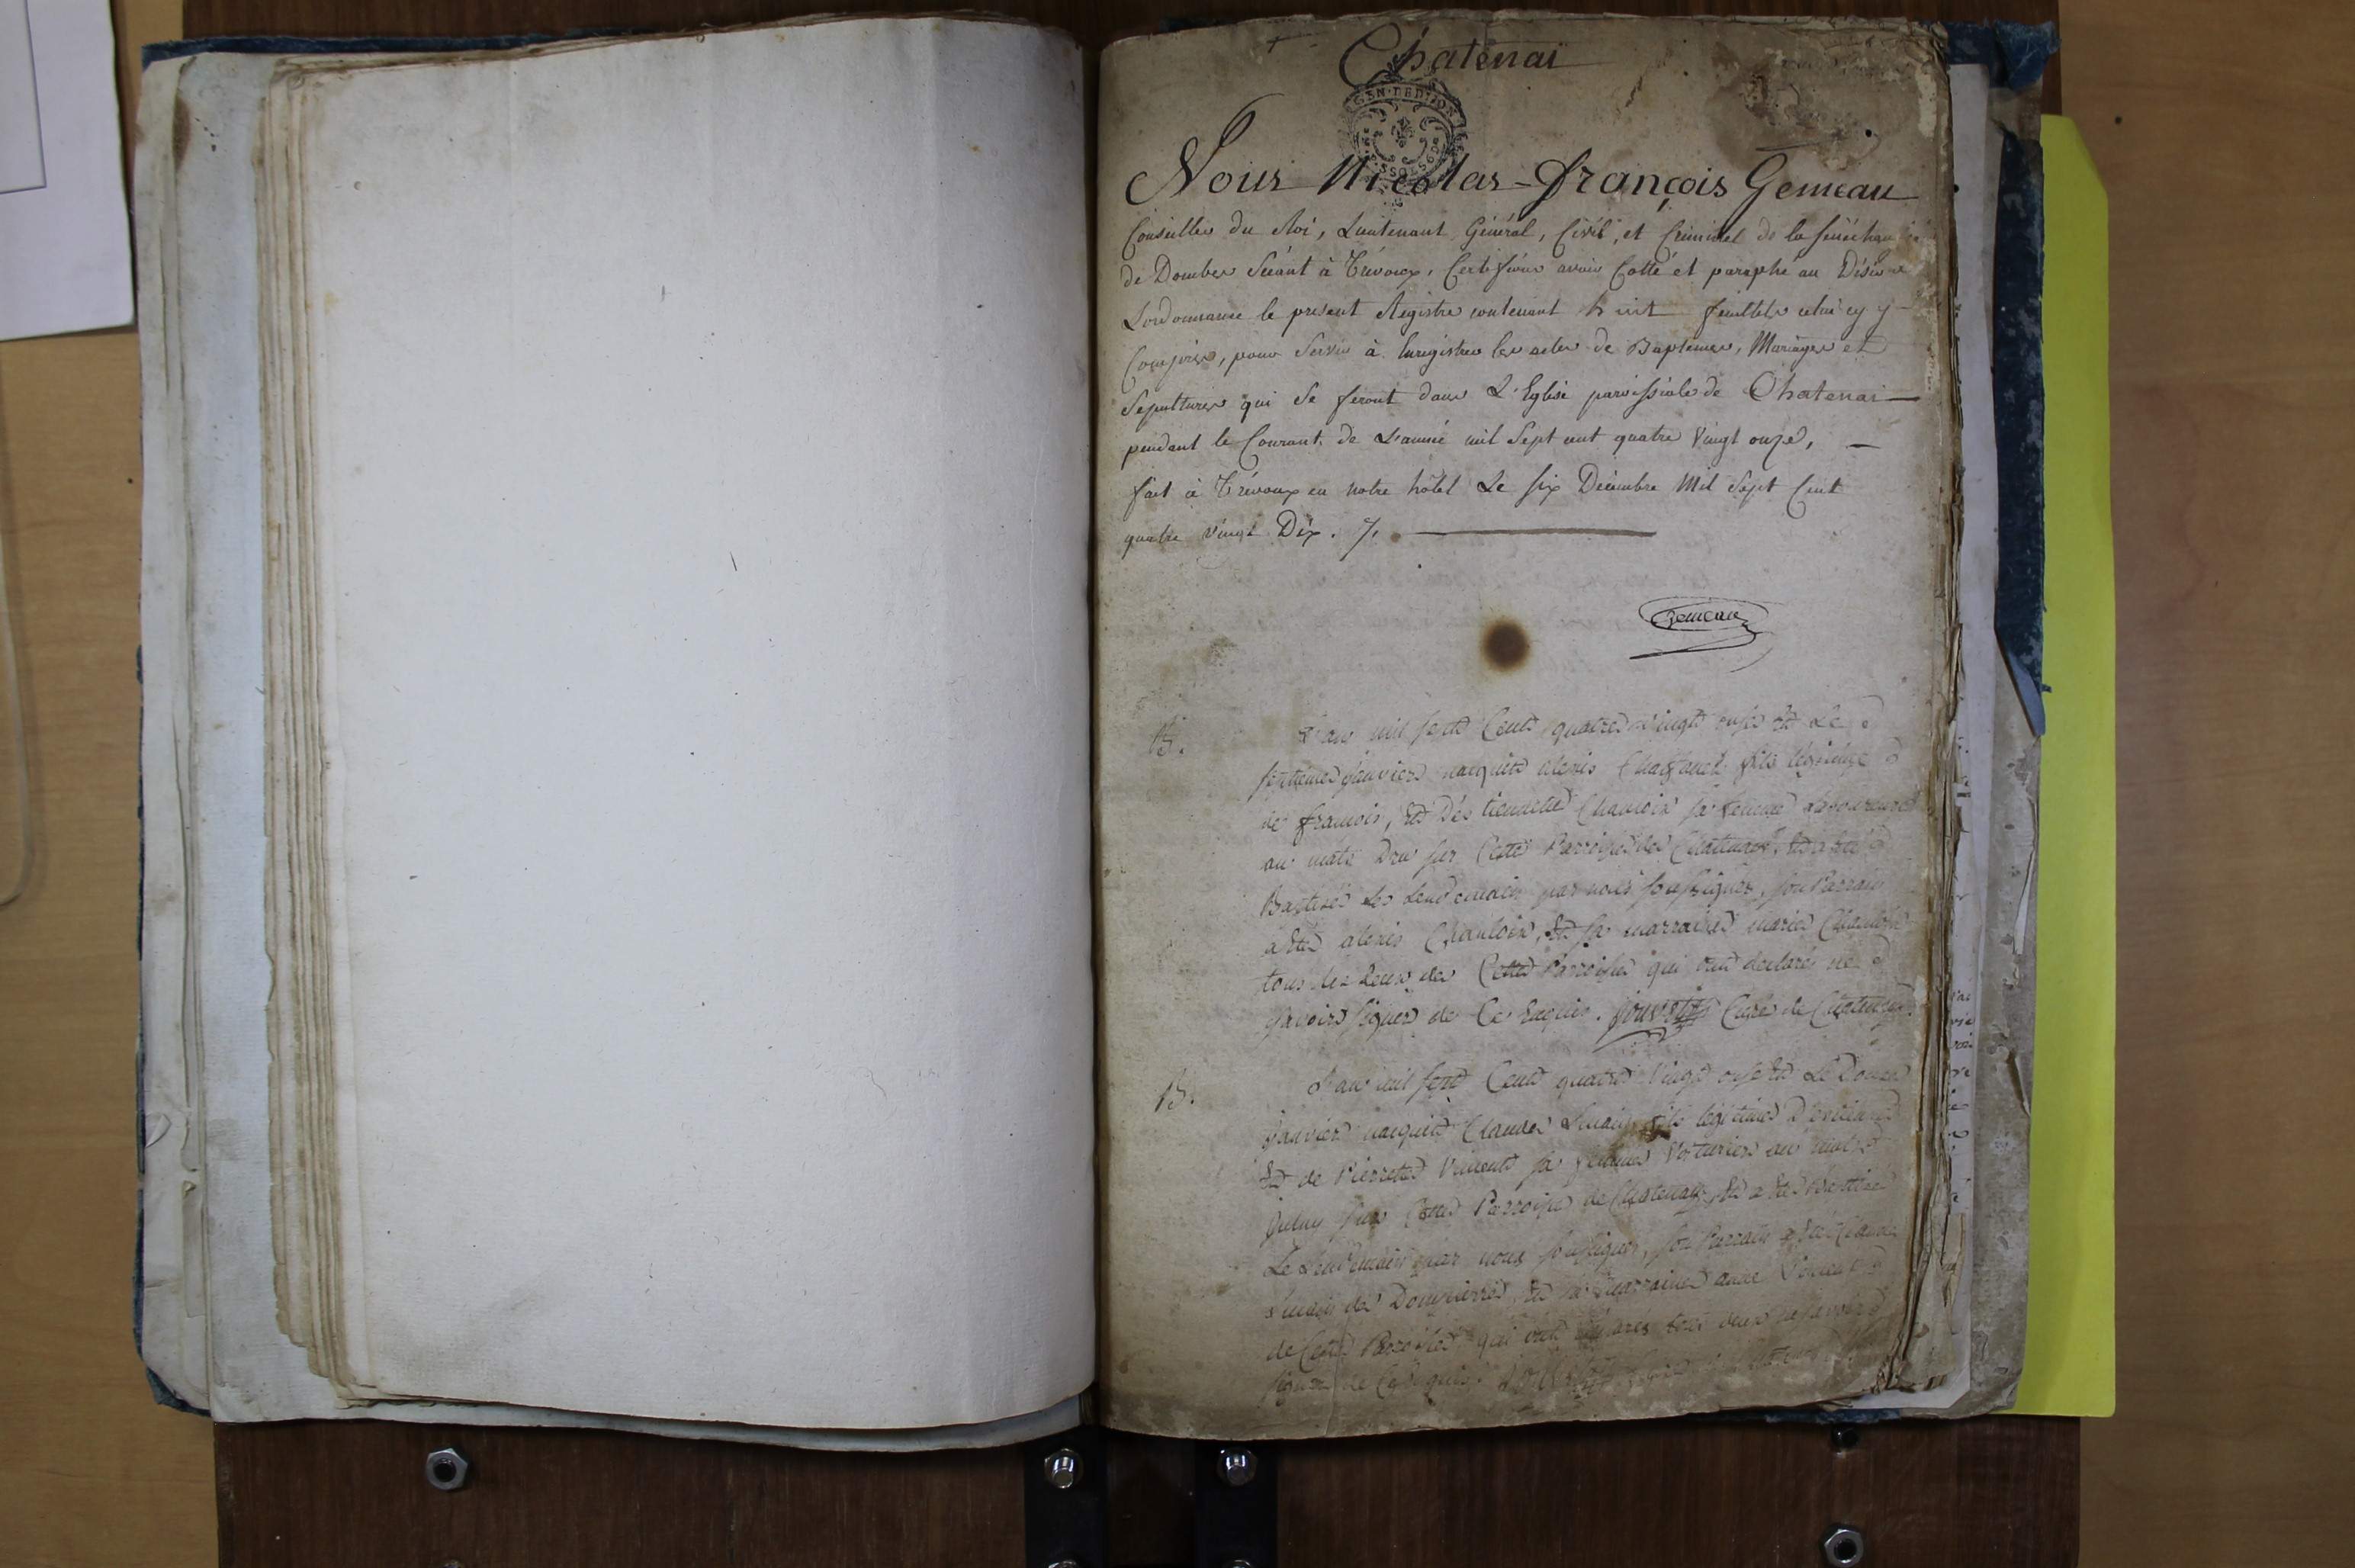 Chatenai
GEN. DE DIJON
Nous Nicolas-françois Gemeau
Conseiller du Roi, Lieutenant Général, Civil, et Criminel de la sénéchaussée
de Dombes Séant à Trévoux, Certifions avoir Cotté et paraphé au Désir de
Lordonnance le present Registre contenant huit feuillets celui cy y
Compris, pour Servir à Enregistrer les actes de Baptemes, Mariages et
Sepultures qui Se feront dans L'Eglise paroissiale de Chatenai
pendant le Courant de L'année mil Sept cent quatre Vingt onze,
fait à Trévoux en notre hôtel Le six Décembre Mil Sept Cent
quatre Vingt Dix.
Gemeau
B.
L'an mil sept Cent quatre vingt onze et Le
septieme janvier naquit alexis fils légitime
de francois, et d'étiennette Chanloin sa femme Laboureur
au mas Dru sur Cette Parroisse de Chatenay, et a été
Baptisé le Lendemain par nous soussigner, son Parrain
a été alexis Chanloin, et sa marraine marie Chanloin
tous les deux de Cette Parroisse qui ont declaré ne
savoir signer de Ce Enquis. Curé de Chatenay.
B.
L'an mil sept Cent quatre Vingt onze et Le Douze
janvier naquit Claude fils légitime D'étienne
et de Pierrette Vincent sa femme Voturier au mas
sur Cette Parroisse de Chatenay, et a été Baptisé
Le Lendemain par nous soussigner, son Parrain a été Claude
de Dompierre, et sa marraine anne Vincent
de Cette Parroisse qui ont declarés tous deux ne savoir
signer de Ce Enquis. Curé de Chatenay